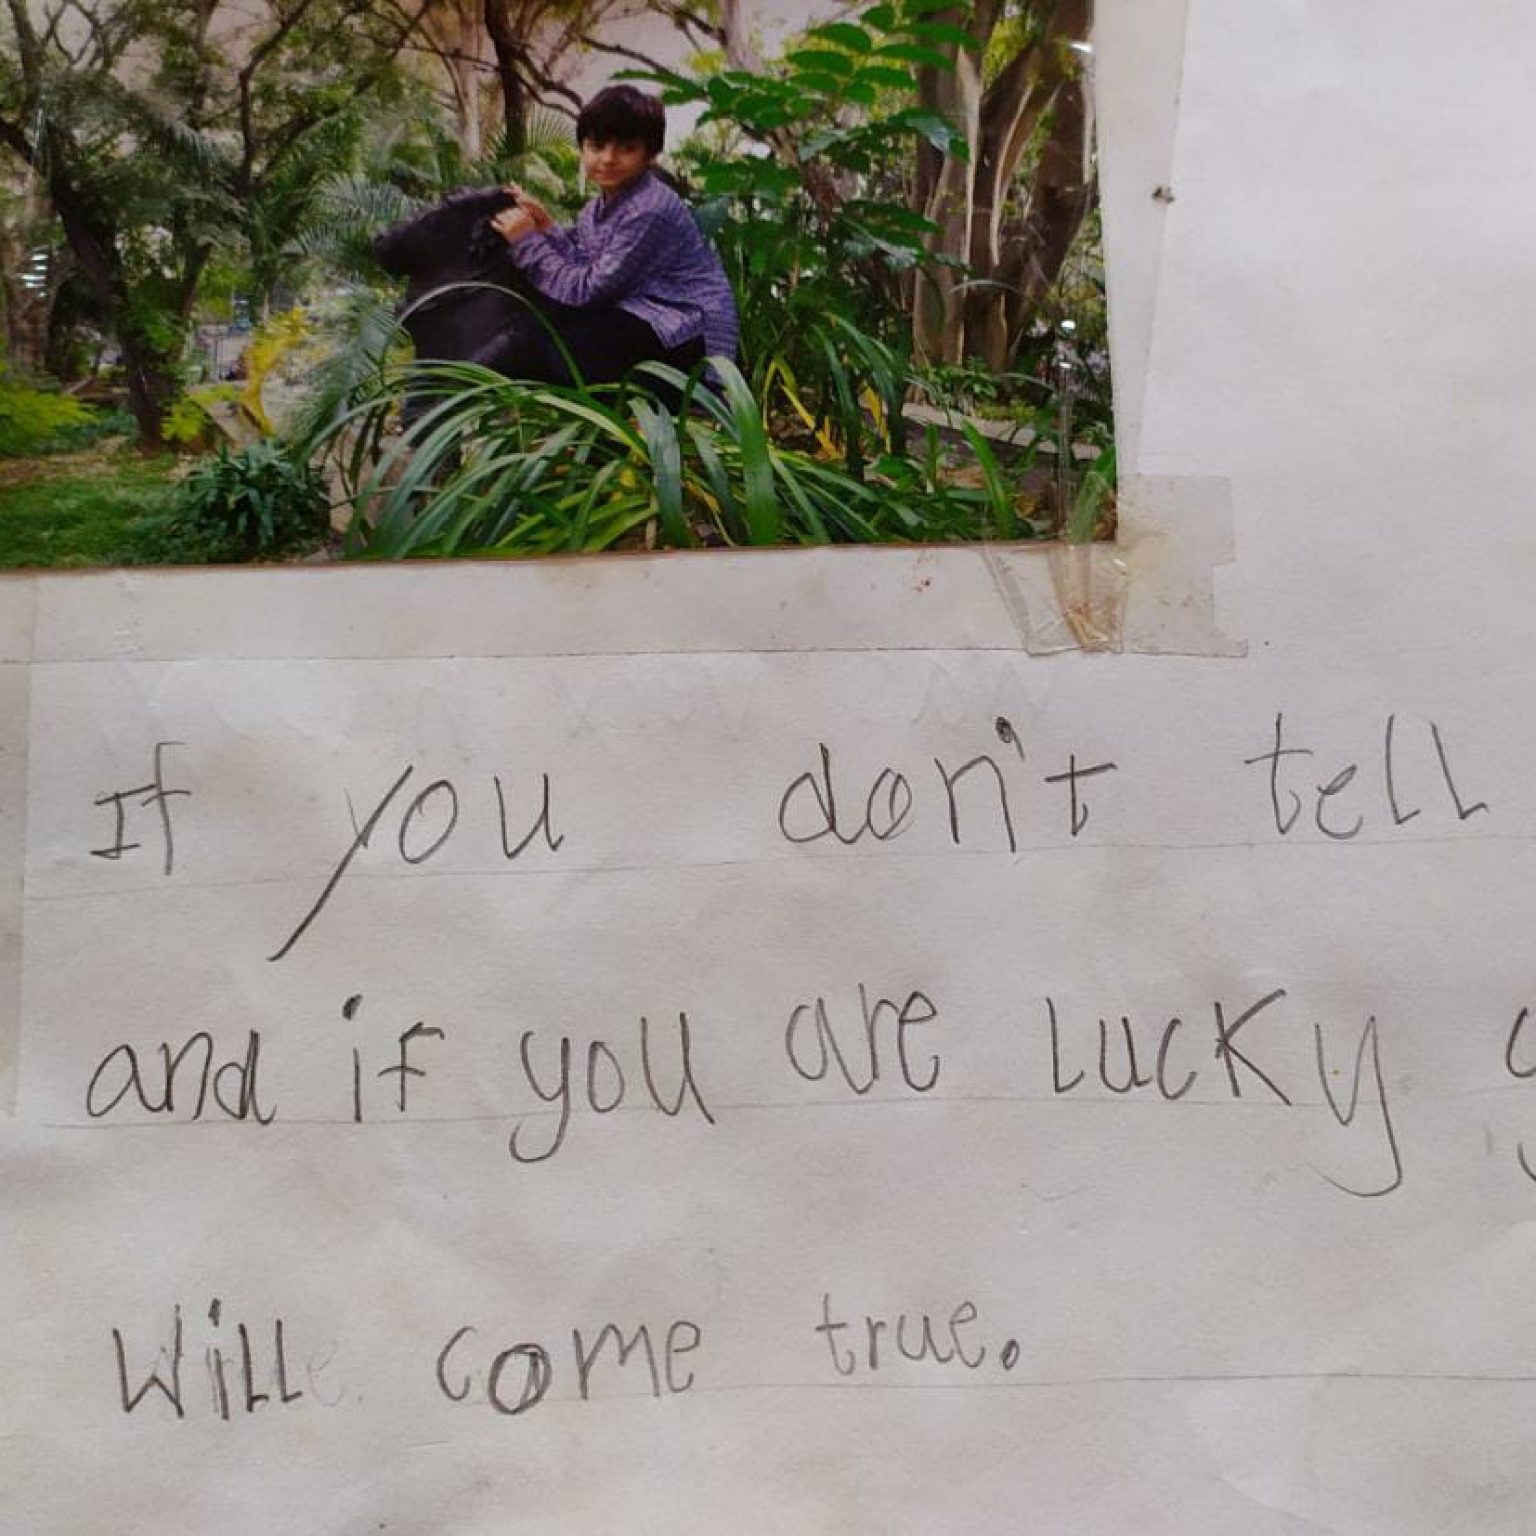 If you don't tell
and if you are lucky
will come true.